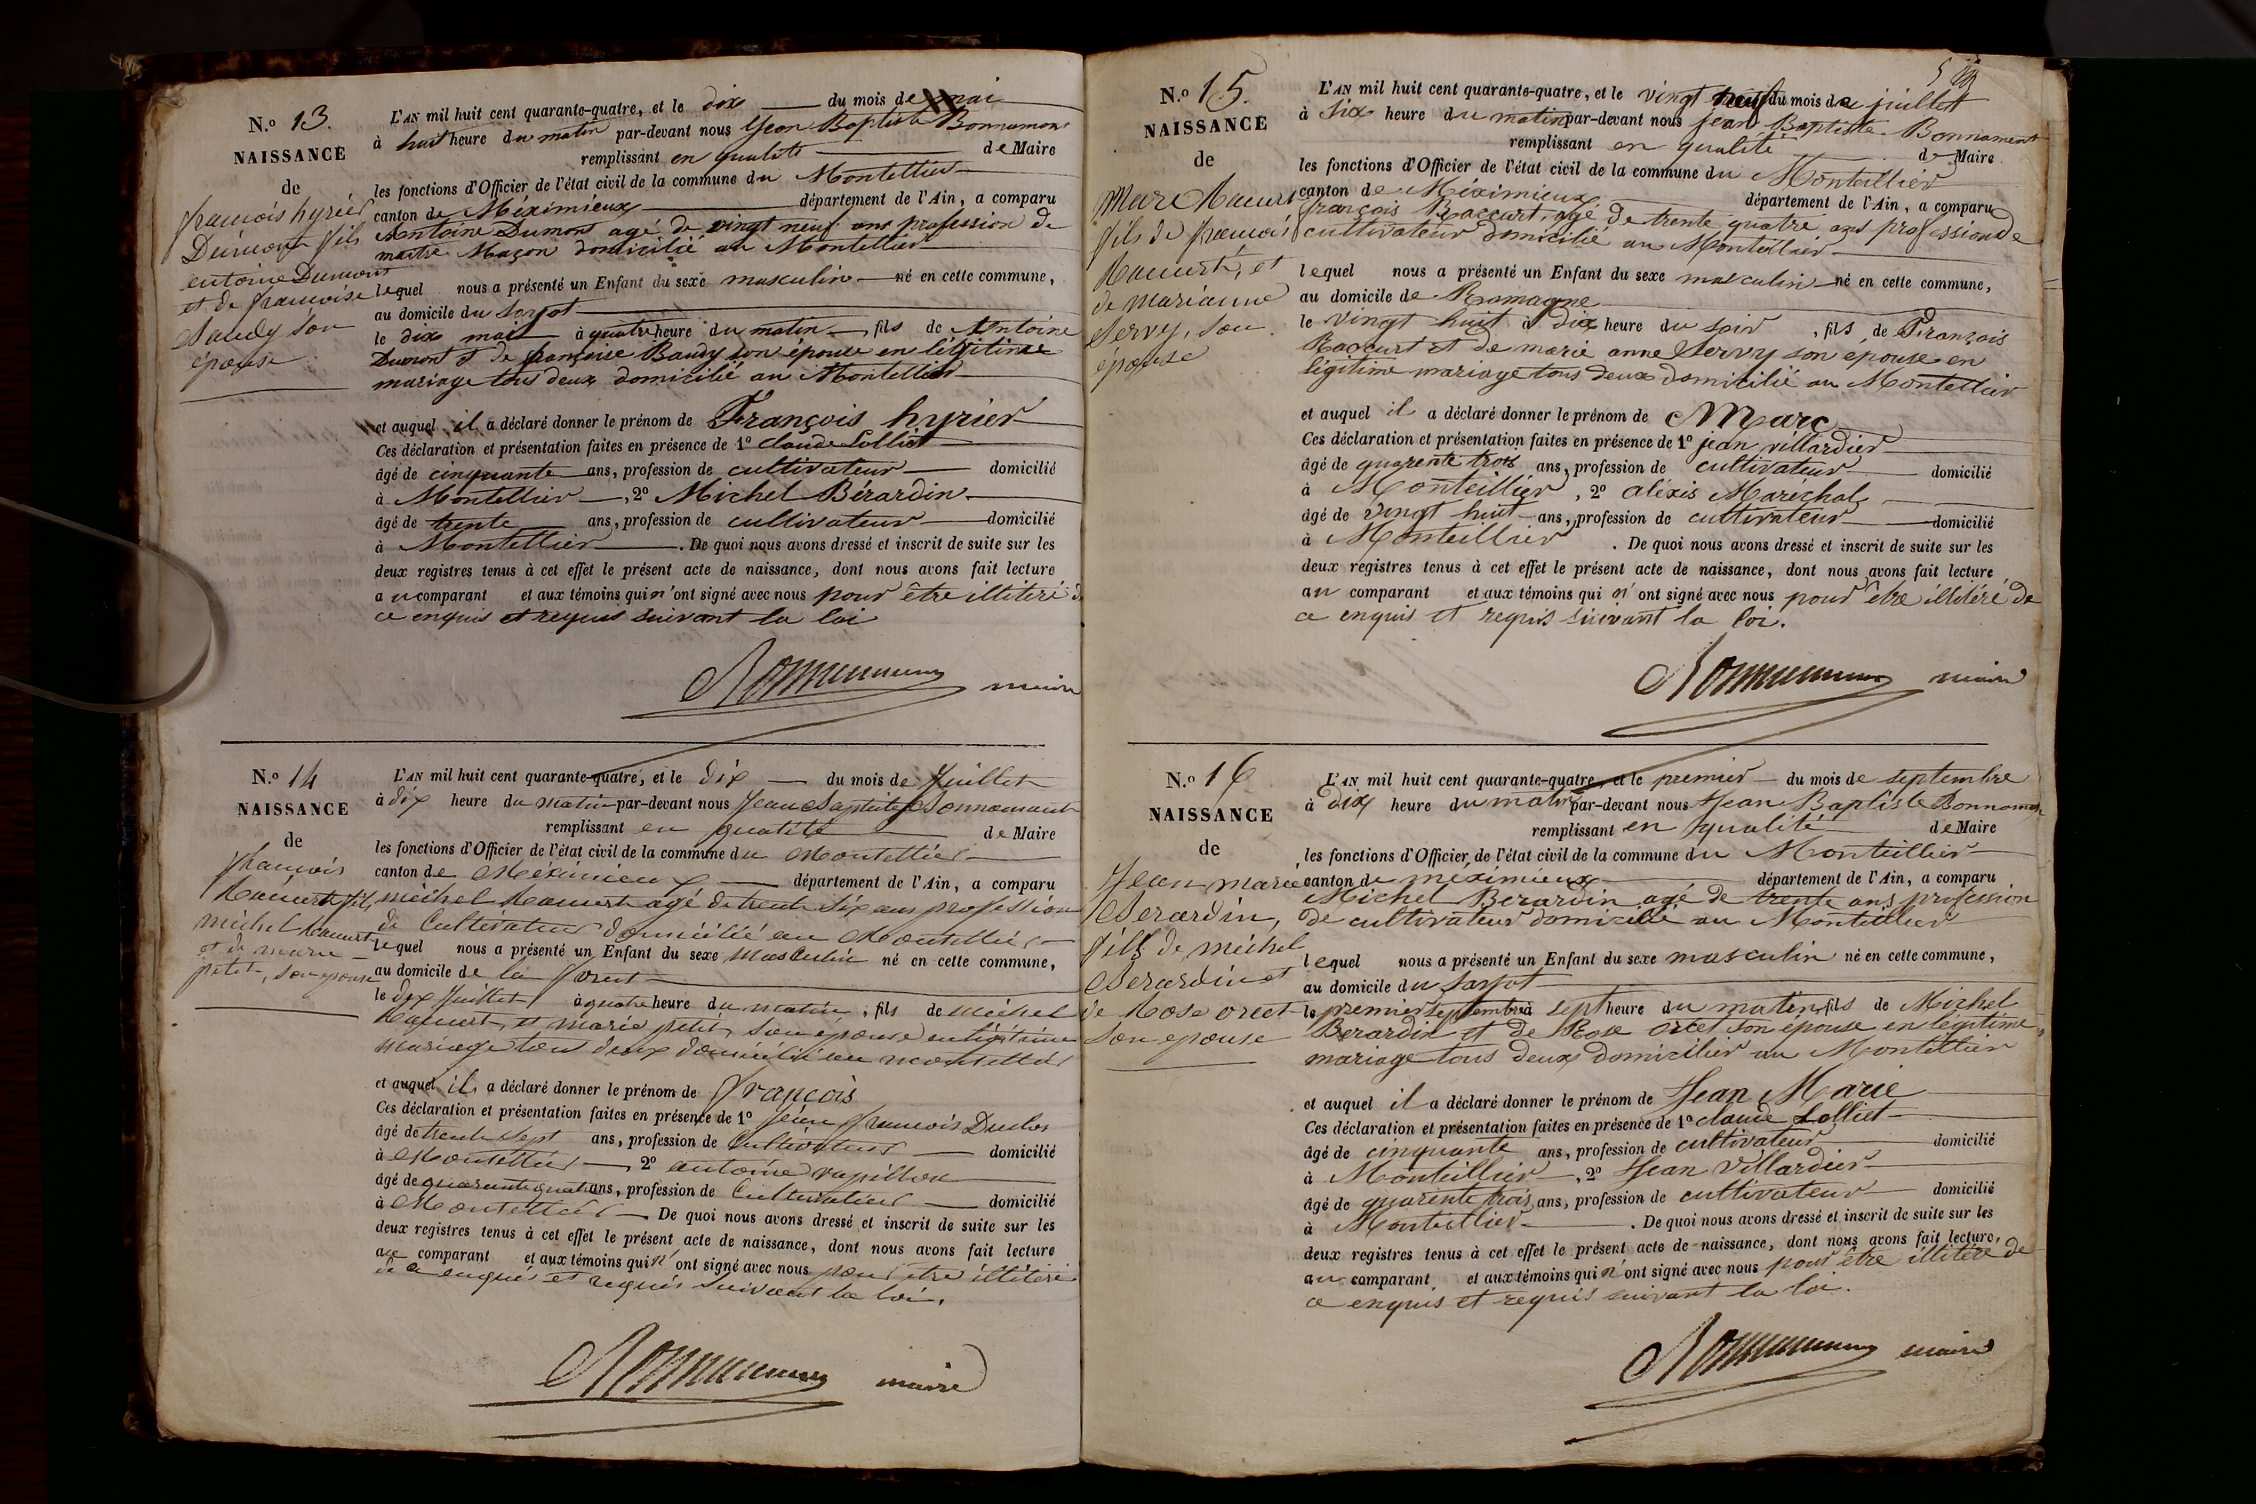 N.o 13.
NAISSANCE
de
françois hyrier
Dumont fils
antoine Dumont
et de françoise
Baudy son
épouse
L'AN mil huit cent quarante-quatre, et le dix du mois de mai
à huit heure du matin par-devant nous Jean Baptiste Bonnamour
remplissant en qualité de Maire
les fonctions d'Officier de l'état civil de la commune du Montellier
canton de Méximieux département de l'Ain, a comparu
Antoine Dumont agé de vingt neuf ans profession de
maitre Maçon domicilié au Montellier
lequel nous a présenté un Enfant du sexe masculin né en cette commune,
au domicile du Sorpot
le dix mai à quatre heure du matin, fils de Antoine
Dumont et de françoise Baudy son épouse en légitime
mariage tous deux domicilié au Montellier
et auquel il a déclaré donner le prénom de François hyrier
Ces déclaration et présentation faites en présence de 1º Claude Lolliet
âgé de cinquante ans, profession de cultivateur domicilié
à Montellier, 2º Michel Bérardin
âgé de trente ans, profession de cultivateur domicilié
à Montellier. De quoi nous avons dressé et inscrit de suite sur les
deux registres tenus à cet effet le présent acte de naissance, dont nous avons fait lecture
au comparant et aux témoins qui n'ont signé avec nous pour être illitéré de
ce enquis et requis suivant la loi
maire
N.o 14
NAISSANCE
de
françois
Raccurt fils
michel Raccurt
et de marie
petit, son épouse
L'AN mil huit cent quarante-quatre, et le dix du mois de Juillet
à dix heure du matin par-devant nous Jean Baptiste Bonnamour
remplissant en qualité de Maire
les fonctions d'Officier de l'état civil de la commune du Montellier
canton de Méximieux département de l'Ain, a comparu
michel Raccurt agé de trente six ans profession
de Cultivateur domicilié au Montellier
lequel nous a présenté un Enfant du sexe masculin né en cette commune,
au domicile de la foret
le dix Juillet à quatre heure du matin, fils de michel
Raccurt et marie petit, son epouse en légitime
mariage tous deux domicilié au montellier
et auquel il a déclaré donner le prénom de françois
Ces déclaration et présentation faites en présence de 1º Jean francois Duclos
âgé de trente sept ans, profession de Cultivateur domicilié
à Montellier 2º antoine vapillon
âgé de quarante quatre ans, profession de Cultivateur domicilié
à Montellier De quoi nous avons dressé et inscrit de suite sur les
deux registres tenus à cet effet le présent acte de naissance, dont nous avons fait lecture
au comparant et aux témoins qui n'ont signé avec nous pour être illitéré
de ce enquis et requis suivant la loi.
maire
N.o 15.
NAISSANCE
de
Marc Raccurt
fils de françois
Raccurt, et
de marianne
Servy, son
épouse
L'AN mil huit cent quarante-quatre, et le vingt neuf du mois de juillet
à six heure du matin par-devant nous jean Baptiste Bonnamour
remplissant en qualité de Maire
les fonctions d'Officier de l'état civil de la commune du Monteillier
canton de Méximieux département de l'Ain, a comparu
françois Raccurt, agé de trente quatre ans profession de
cultivateur domicilié au Monteillier
lequel nous a présenté un Enfant du sexe masculin né en cette commune,
au domicile de Romagne
le vingt huit à dix heure du soir, fils de François
Raccurt et de marie anne Servy son épouse en
légitime mariage tous deux domicilié au Montellier
et auquel il a déclaré donner le prénom de Marc
Ces déclaration et présentation faites en présence de 1º jean villardier
âgé de quarente trois ans, profession de cultivateur domicilié
à Monteillier, 2º aléxis Maréchal
âgé de vingt huit ans, profession de cultivateur domicilié
à Monteillier. De quoi nous avons dressé et inscrit de suite sur les
deux registres tenus à cet effet le présent acte de naissance, dont nous avons fait lecture
au comparant et aux témoins qui n'ont signé avec nous pour être illitéré de
ce enquis et requis suivant la loi.
maire
N.o 16
NAISSANCE
de
Jean marie
Berardin,
fils de michel
Berardin et
de Rose orcet
son epouse
L'AN mil huit cent quarante-quatre, et le premier du mois de septembre
à dix heure du matin par-devant nous Jean Baptiste Bonnamour
remplissant en qualité de Maire
les fonctions d'Officier de l'état civil de la commune du Monteillier
canton de méximieux département de l'Ain, a comparu
Michel Berardin agé de trente ans profession
de cultivateur domicilié au Monteillier
lequel nous a présenté un Enfant du sexe masculin né en cette commune,
au domicile du Sarpot
le premier septembre à sept heure du matin, fils de Michel
Berardin et de Rose orcet son épouse en légitime
mariage tous deux domicilier au Montellier
et auquel il a déclaré donner le prénom de Jean Marie
Ces déclaration et présentation faites en présence de 1º claude Lolliet
âgé de cinquante ans, profession de cultivateur domicilié
à Monteillier, 2º Jean villardier
âgé de quarente trois ans, profession de cultivateur domicilié
à Monteillier. De quoi nous avons dressé et inscrit de suite sur les
deux registres tenus à cet effet le présent acte de naissance, dont nous avons fait lecture,
au comparant et aux témoins qui n'ont signé avec nous pour être illitéré de
ce enquis et requis suivant la loi.
maire